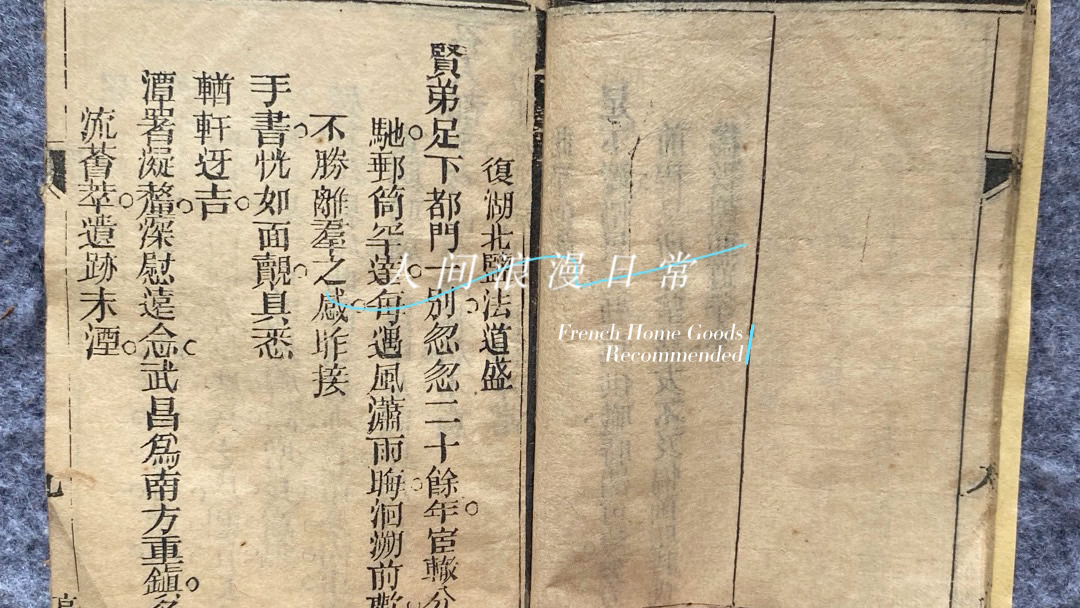 復湖北鹽法道盛
賢弟足下都門一別。忽忽二十餘年。宦轍分
馳。郵筒罕達。每遇風瀟雨晦。洄溯前
不勝離羣之感。昨接
手書。恍如面覿。具悉
輶軒迓吉。
潭署凝釐。深慰遠念。武昌爲南方重鎮。名
流薈萃。遺跡未湮。
人间浪漫日常
French Home Goods
Recommended